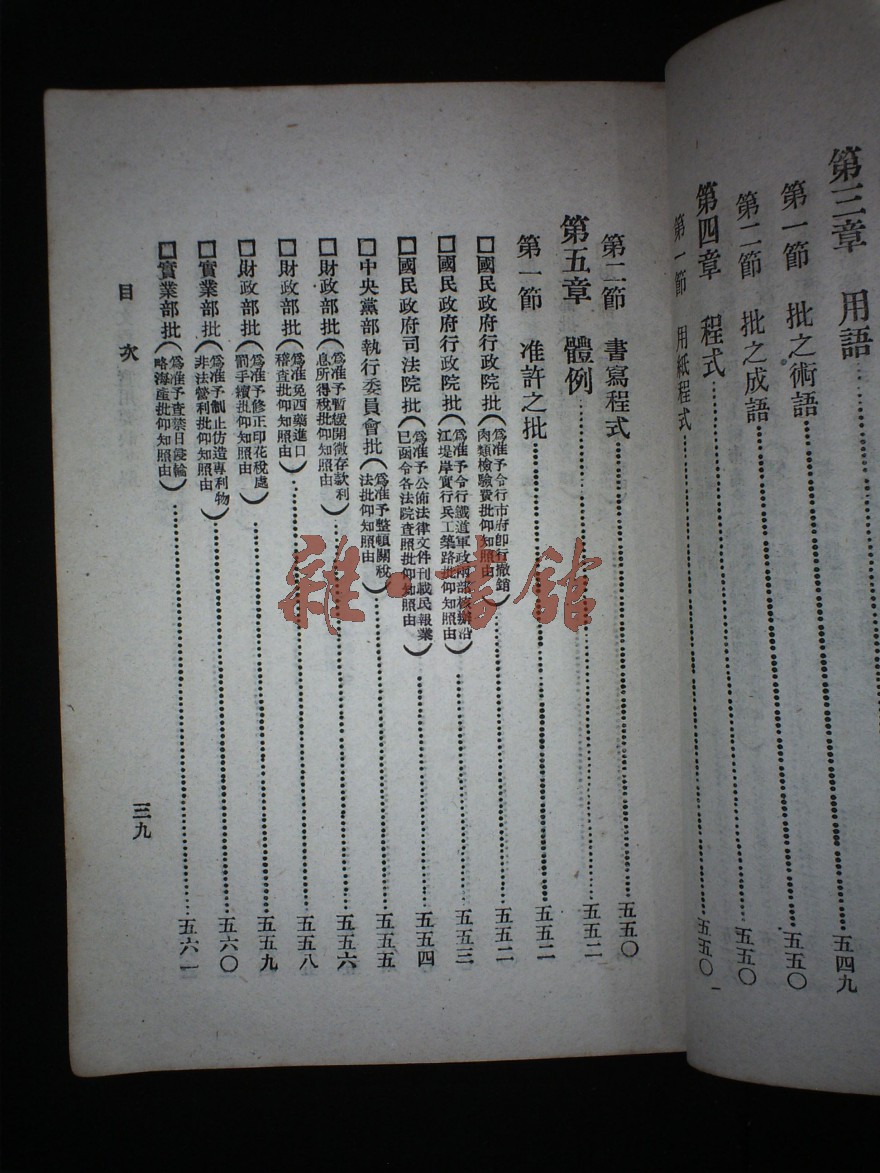 第三章 用語……五四九
第一節 批之術語……五五〇
第二節 批之成語……五五〇
第四章 程式……五五〇
第一節 用紙程式
第二節 書寫程式……五五〇
第五章 體例……五五二
第一節 准許之批……五五二
□國民政府行政院批(爲准予令行市府卽行撤銷肉類檢驗費批仰知照由)……五五二
□國民政府行政院批(爲准予令行鐵道軍政兩部核辦沿江堤岸實行兵工築路批仰知照由)……五五三
□國民政府司法院批(爲准予公佈法律文件刊載民報業已函令各法院查照批仰知照由)……五五四
□中央黨部執行委員會批(爲准予整頓關稅法批仰知照由)……五五五
□財政部批(爲准予暫緩開徵存款利息所得稅批仰知照由)……五五六
□財政部批(爲准免西藥進口稽查批仰知照由)……五五八
□財政部批(爲准予修正印花稅處罰手續批仰知照由)……五五九
□實業部批(爲准予制止仿造專利物非法營利批仰知照由)……五六〇
□實業部批(爲准予查禁日艘輪略海產批仰知照由)……五六一
目次
三九
雜·書館